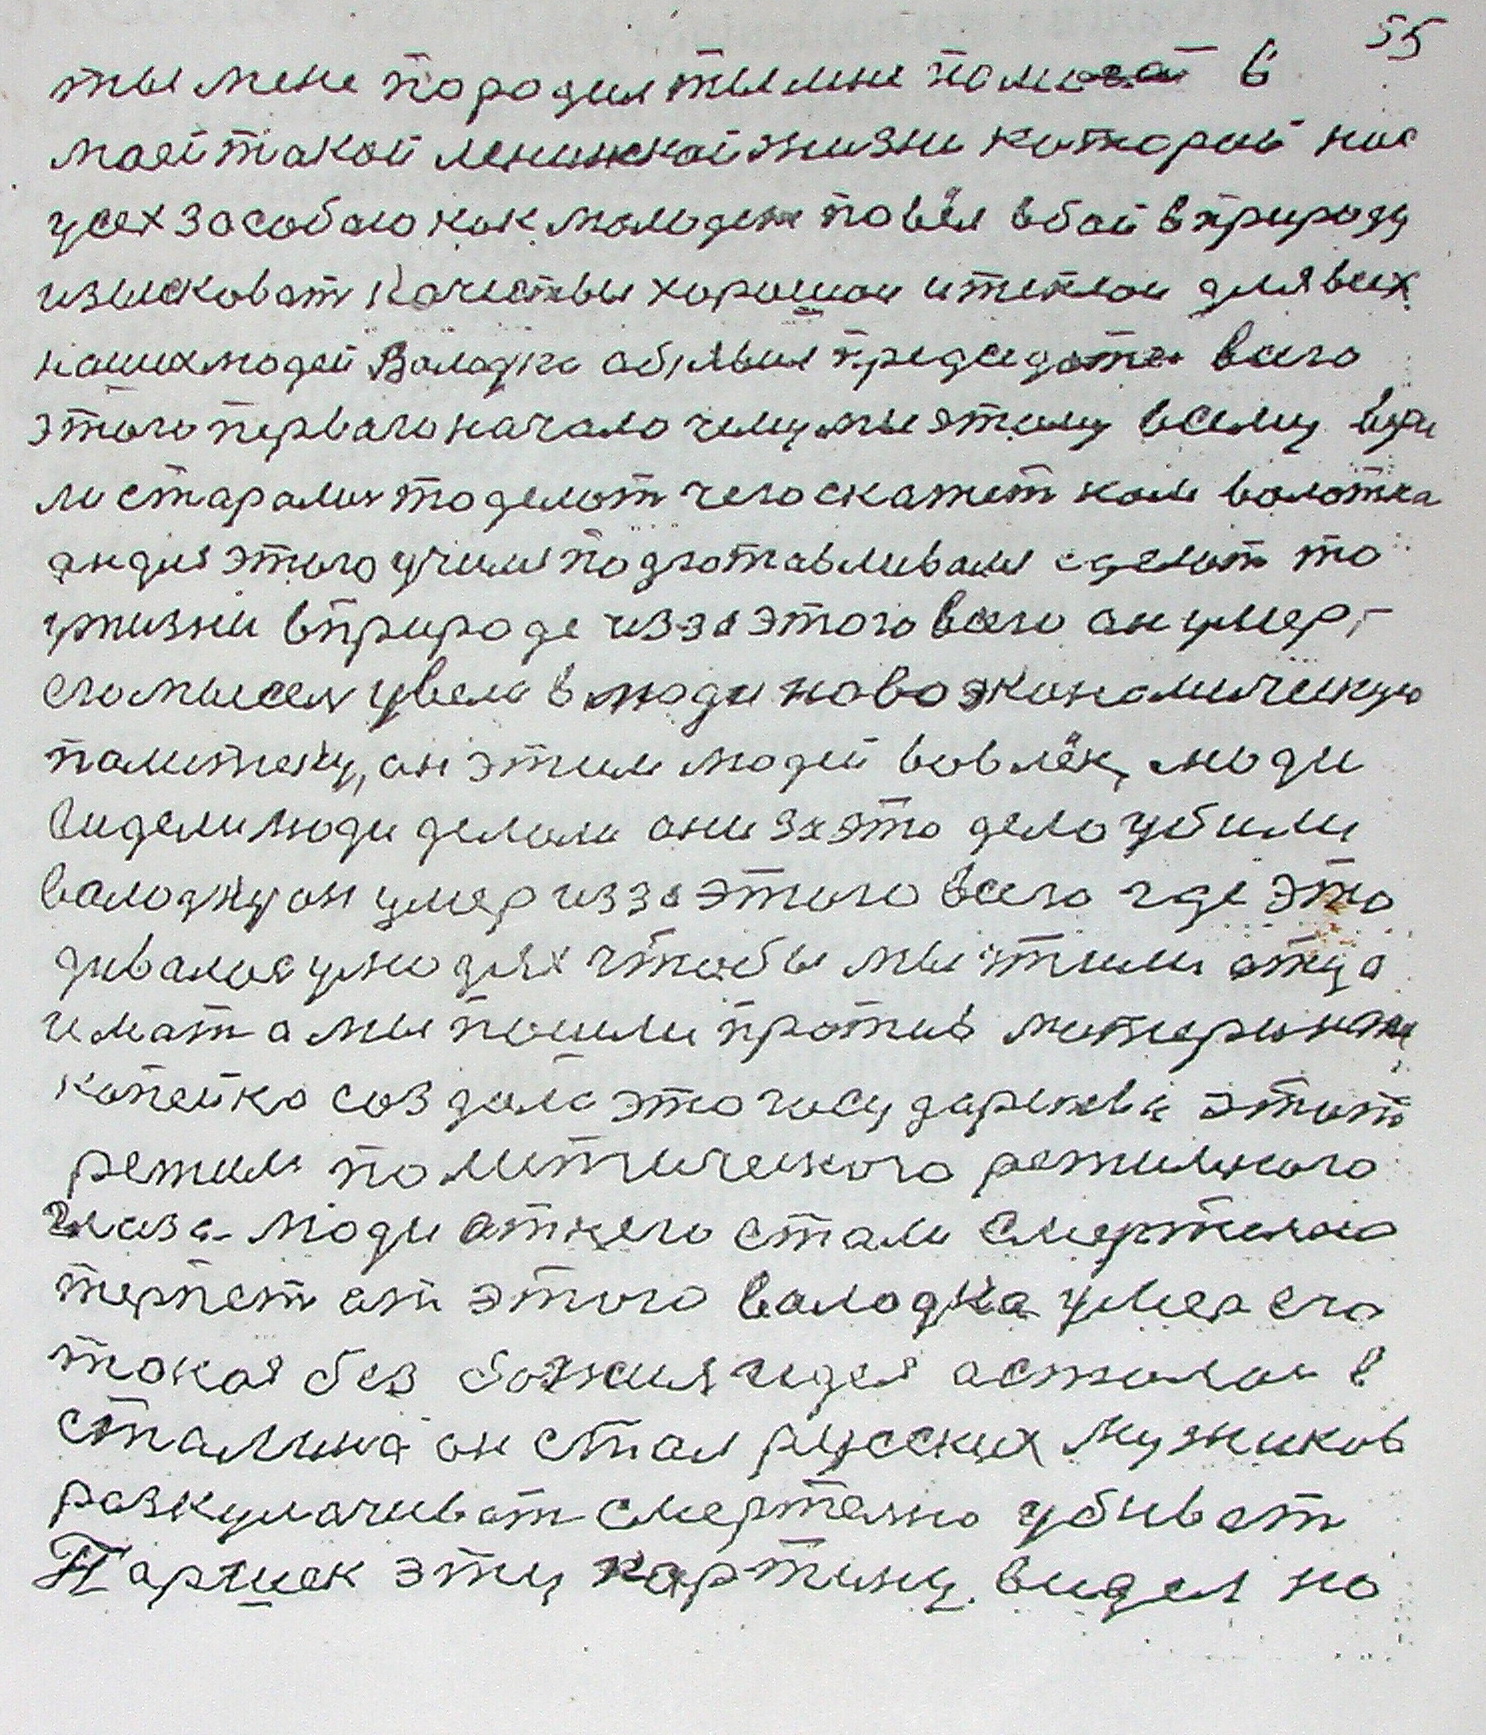 55
ты мене породил ты мне помогай в
маей такой ленинской жизни который нас
усех за собаю как молодёж повёл в бой в природу
изысковат качествы хорошои и теплои для всех
наших людей Валодка обявил председател всего
этого первого начало чему мы этому всему вери
ли старалис то делот чего скажет нам валотка
он для этого учился подготавливался сделат то
у жизни в природе из за этого всего он умер,
его мысел увела в люди новоэкономическую
политеку, он этим людей вовлёк, люди
видели люди делали они за это дело убили
валодку он умер из за этого всего где это
девалося у людях чтобы мы чтили отца
и мат а мы пошли против материнст
копейка создала это государства этот
режим политического режимного
глаза люди от него стали смертелно
терпет от этого валодка умер его
такая без божия идея осталас в
сталина он стал русских мужиков
розкулачиват смертелно убиват
Паршек эту картину видел но